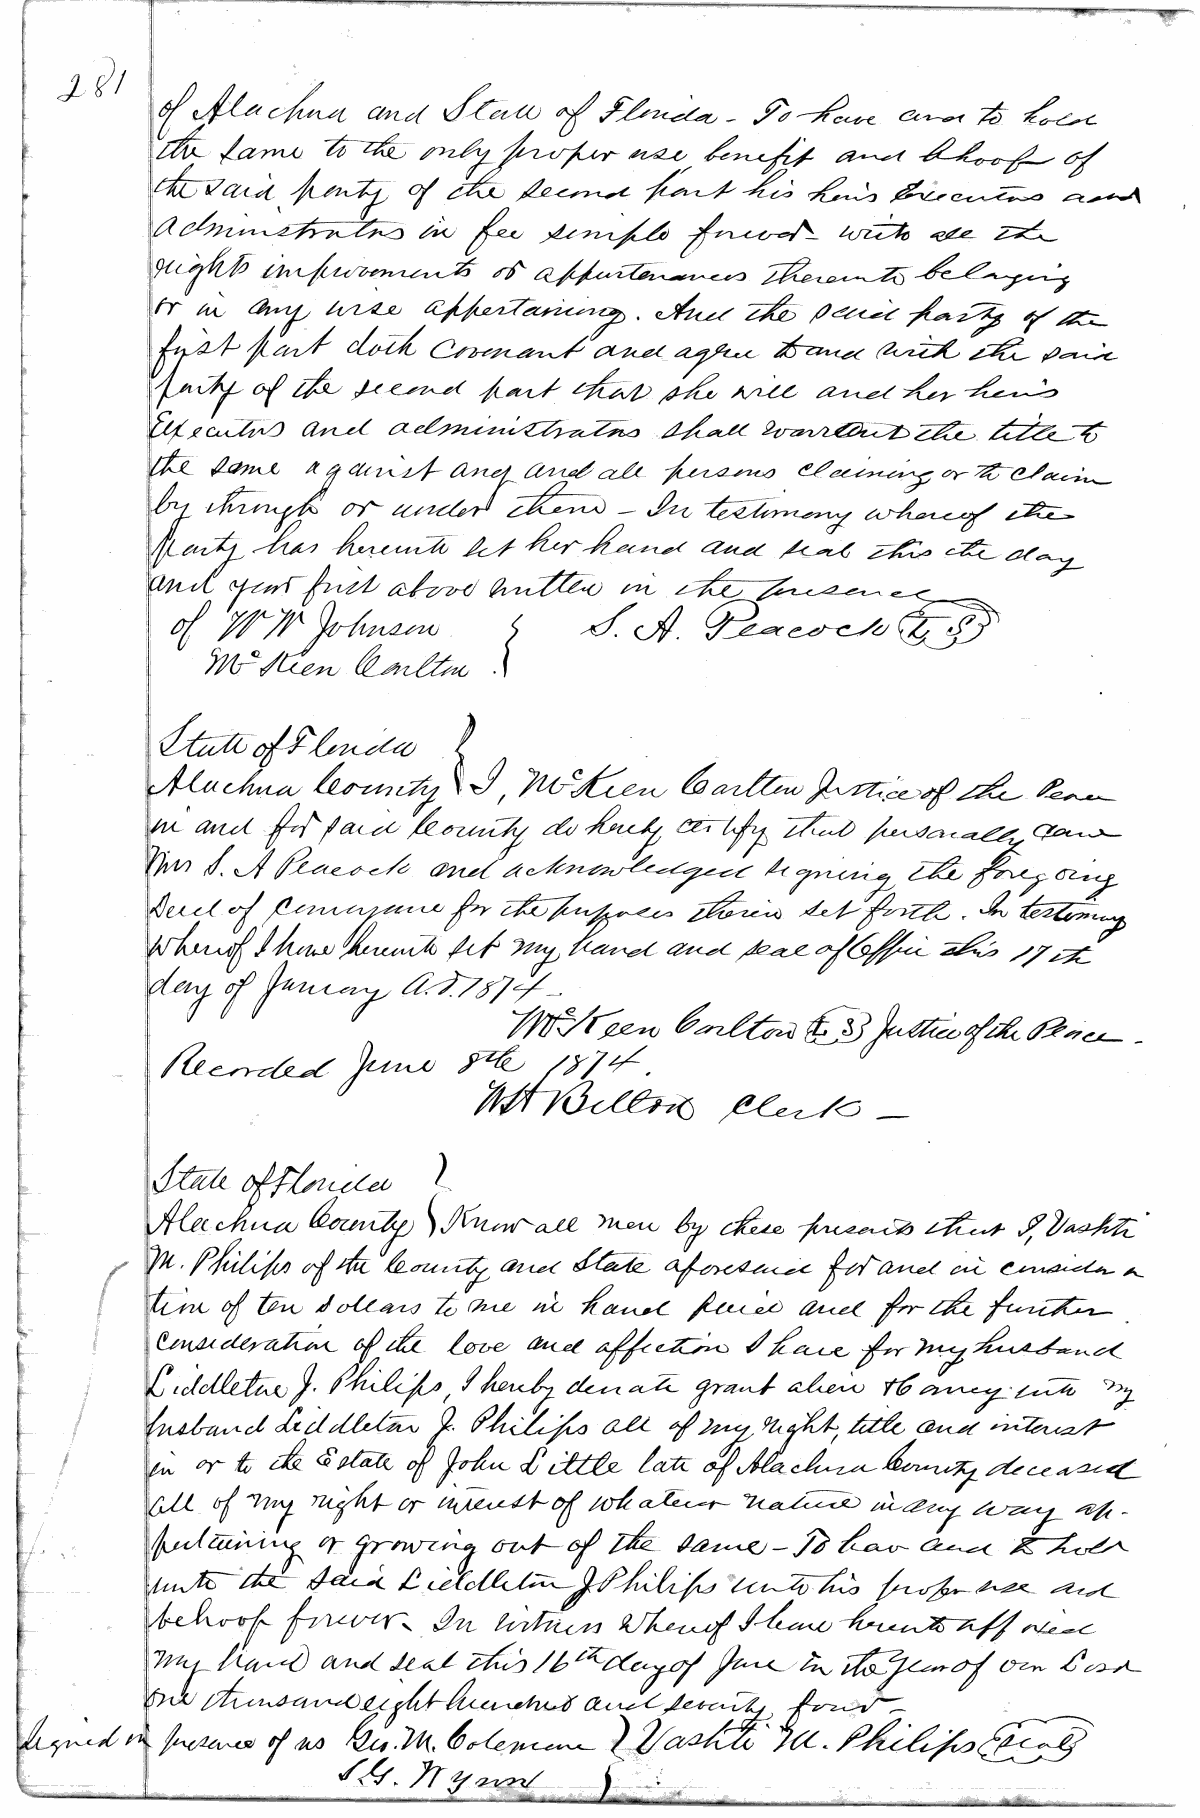 281
of Alachua and State of Florida - To have and to hold
the same to the only proper use, benefit and behoof of
the said party of the second part his heirs Executors and
administrators in fee simple forever - with all the
rights improvements or appurtenances thereunto belonging
or in any wise appertaining. And the said party of the
first part doth covenant and agree to and with the said
party of the second part that she will and her heirs
Executors and administrators shall warrant the title to
the same against any and all persons claiming or to claim
by through or under them - In testimony whereof the
party has hereunto set her hand and seal this the day
and year first above written in the presence
of W W Johnson } S. A. Peacock (L. S.)
McKeen Carlton
State of Florida }
Alachua County } I, McKeen Carlton Justice of the Peace
in and for said County do hereby certify that personally came
Mrs S. A Peacock and acknowledged signing the foregoing
Deed of Conveyance for the purposes therein set forth. In testimony
whereof I have hereunto set my hand and seal of Office this 17th
day of January A.D. 1874 -
McKeen Carlton (L. S) Justice of the Peace -
Recorded June 8th 1874.
Clerk -
State of Florida }
Alachua County } Know all men by these presents that I, Vashti
M. Philips of the County and State aforesaid for and in considera
tion of ten Dollars to me in hand paid and for the further
consideration of the love and affection I have for my husband
Liddleton J. Philips, I hereby donate grant alien & Convey unto my
husband Liddleton J. Philips all of my right, title and interest
in or to the Estate of John Little late of Alachua County deceased
all of my right or interest of whatever nature in any way ap-
pertaining or growing out of the same - To hav and to hold
unto the said Liddleton J Philips unto his proper use and
behoof forever - In witness whereof I have hereunto affixed
my hand and seal this 16th day of June in the Year of our Lord
one thousand eight hundred and seventy four -
Signed in presence of us Geo. M. Coleman } Vashti M. Philips (Seal)
S. G. Wynn }